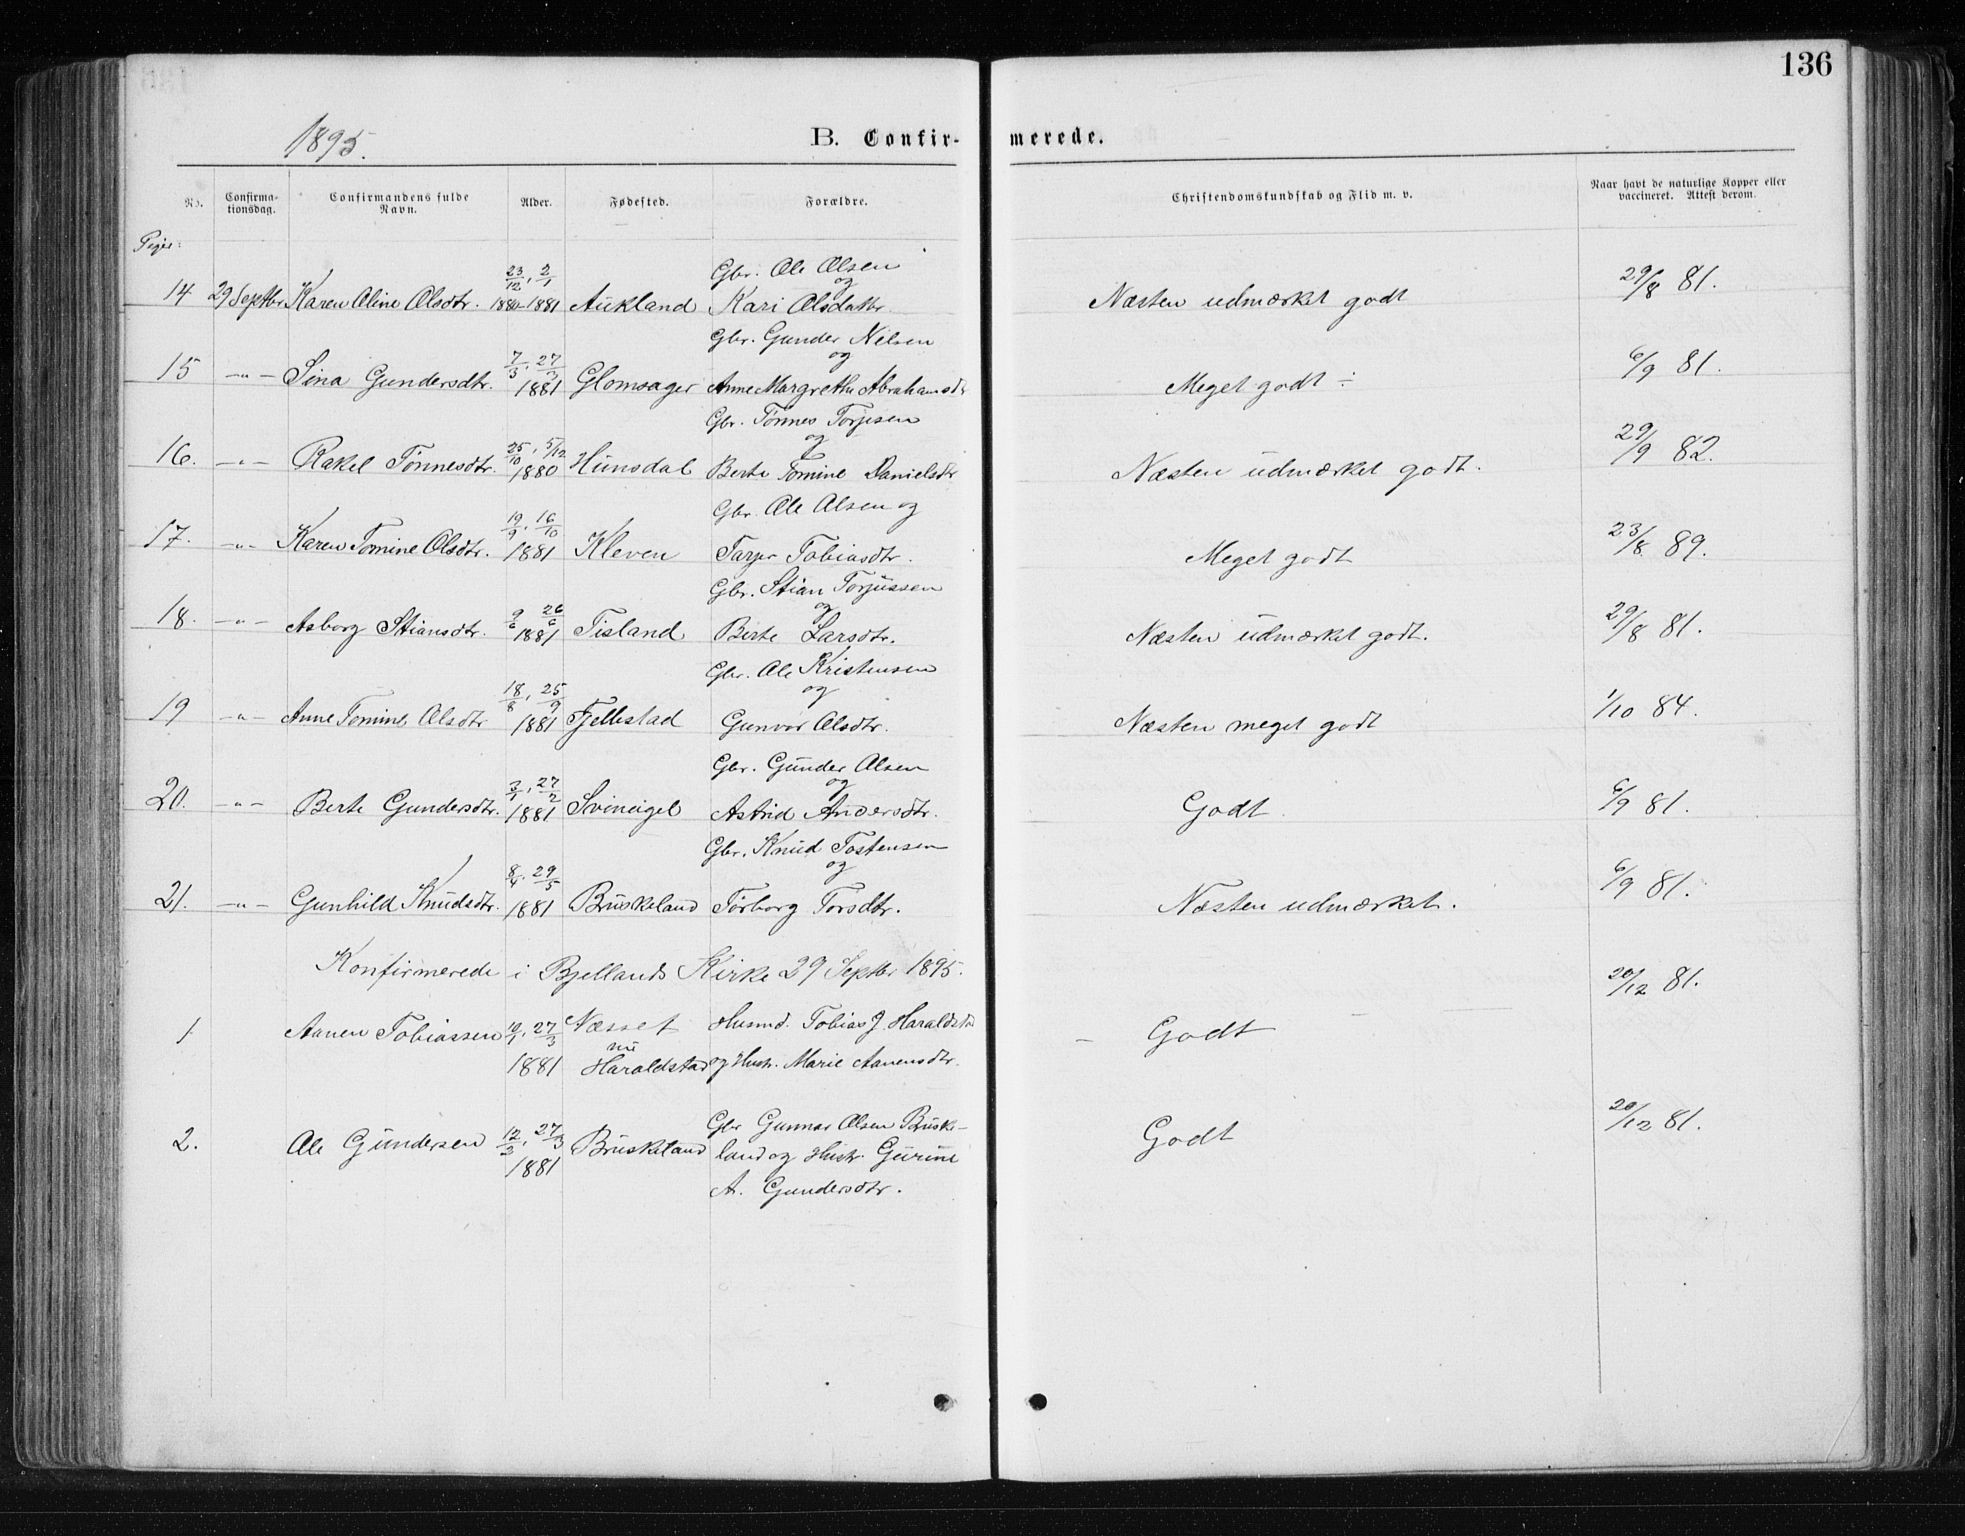 136
1895.
B. Confir-merede.
No. Confirma-tionsdag. Confirmandens fulde Navn. Alder. Fødested. Forældre. Christendomskundskab og Flid m. v. Naar havt de naturlige Kopper eller vaccineret. Attest derom.
Piger:
Gbr. Ole Olsen
og
14 29 Septbr Karen Oline Olsdtr. 23/12, 2/1 1880-1881 Aukland Kari Olsdattr. Næsten udmærket godt 29/8 81.
Gbr. Gunder Nilsen
og
15 -"- Sina Gundersdtr. 7/3, 27/3 1881 Glomsager Anne Margrethe Abrahamsdtr Meget godt ÷ 6/9 81.
Gbr. Tønnes Torjesen
og
16. -"- Rakel Tønnesdtr. 25/10, 5/12 1880 Hunsdal Berte Tomine Danielsdtr Næsten udmærket godt. 29/9 82.
Gbr. Ole Olsen og
17. -"- Karen Tomine Olsdtr. 19/9, 16/10 1881 Kleven Tarjer Tobiasdtr. Meget godt 23/8 89.
Gbr. Stian Torjussen
og
18. -"- Asborg Stiansdtr. 9/6 26/6 1881 Tisland Berte Larsdtr. Næsten udmærket godt. 29/8 81.
Gbr. Ole Kristensen
og
19 -"- Anne Tomine Olsdtr 18/8, 25/9 1881 Fjellestad Gunvor Olsdtr. Næsten meget godt 1/10 84.
Gbr. Gunder Olsen
og
20. -"- Berte Gundersdtr. 3/1, 27/2 1881 Svineigel Astrid Andersdtr. Godt 6/9 81.
Gbr. Knud Tostensen
og
21. -"- Gunhild Knudsdtr. 8/4, 29/5 1881 Bruskeland Torborg Torsdtr. Næsten udmærket. 6/9 81.
Konfirmerede i Bjellands Kirke 29 Septbr 1895.
1 Aanen Tobiassen 19/1, 27/3 Næsset Husmd. Tobias J. Haraldstad Godt 20/12 81.
nu
1881 Haraldstad og Hustr. Marie Aanensdtr.
2. Ole Gundersen 12/3, 27/3 Bruskeland Gbr Gunnar Olsen Bruske- Godt 20/12 81.
1881 land og Hustr. Gurine
A. Gundersdtr.